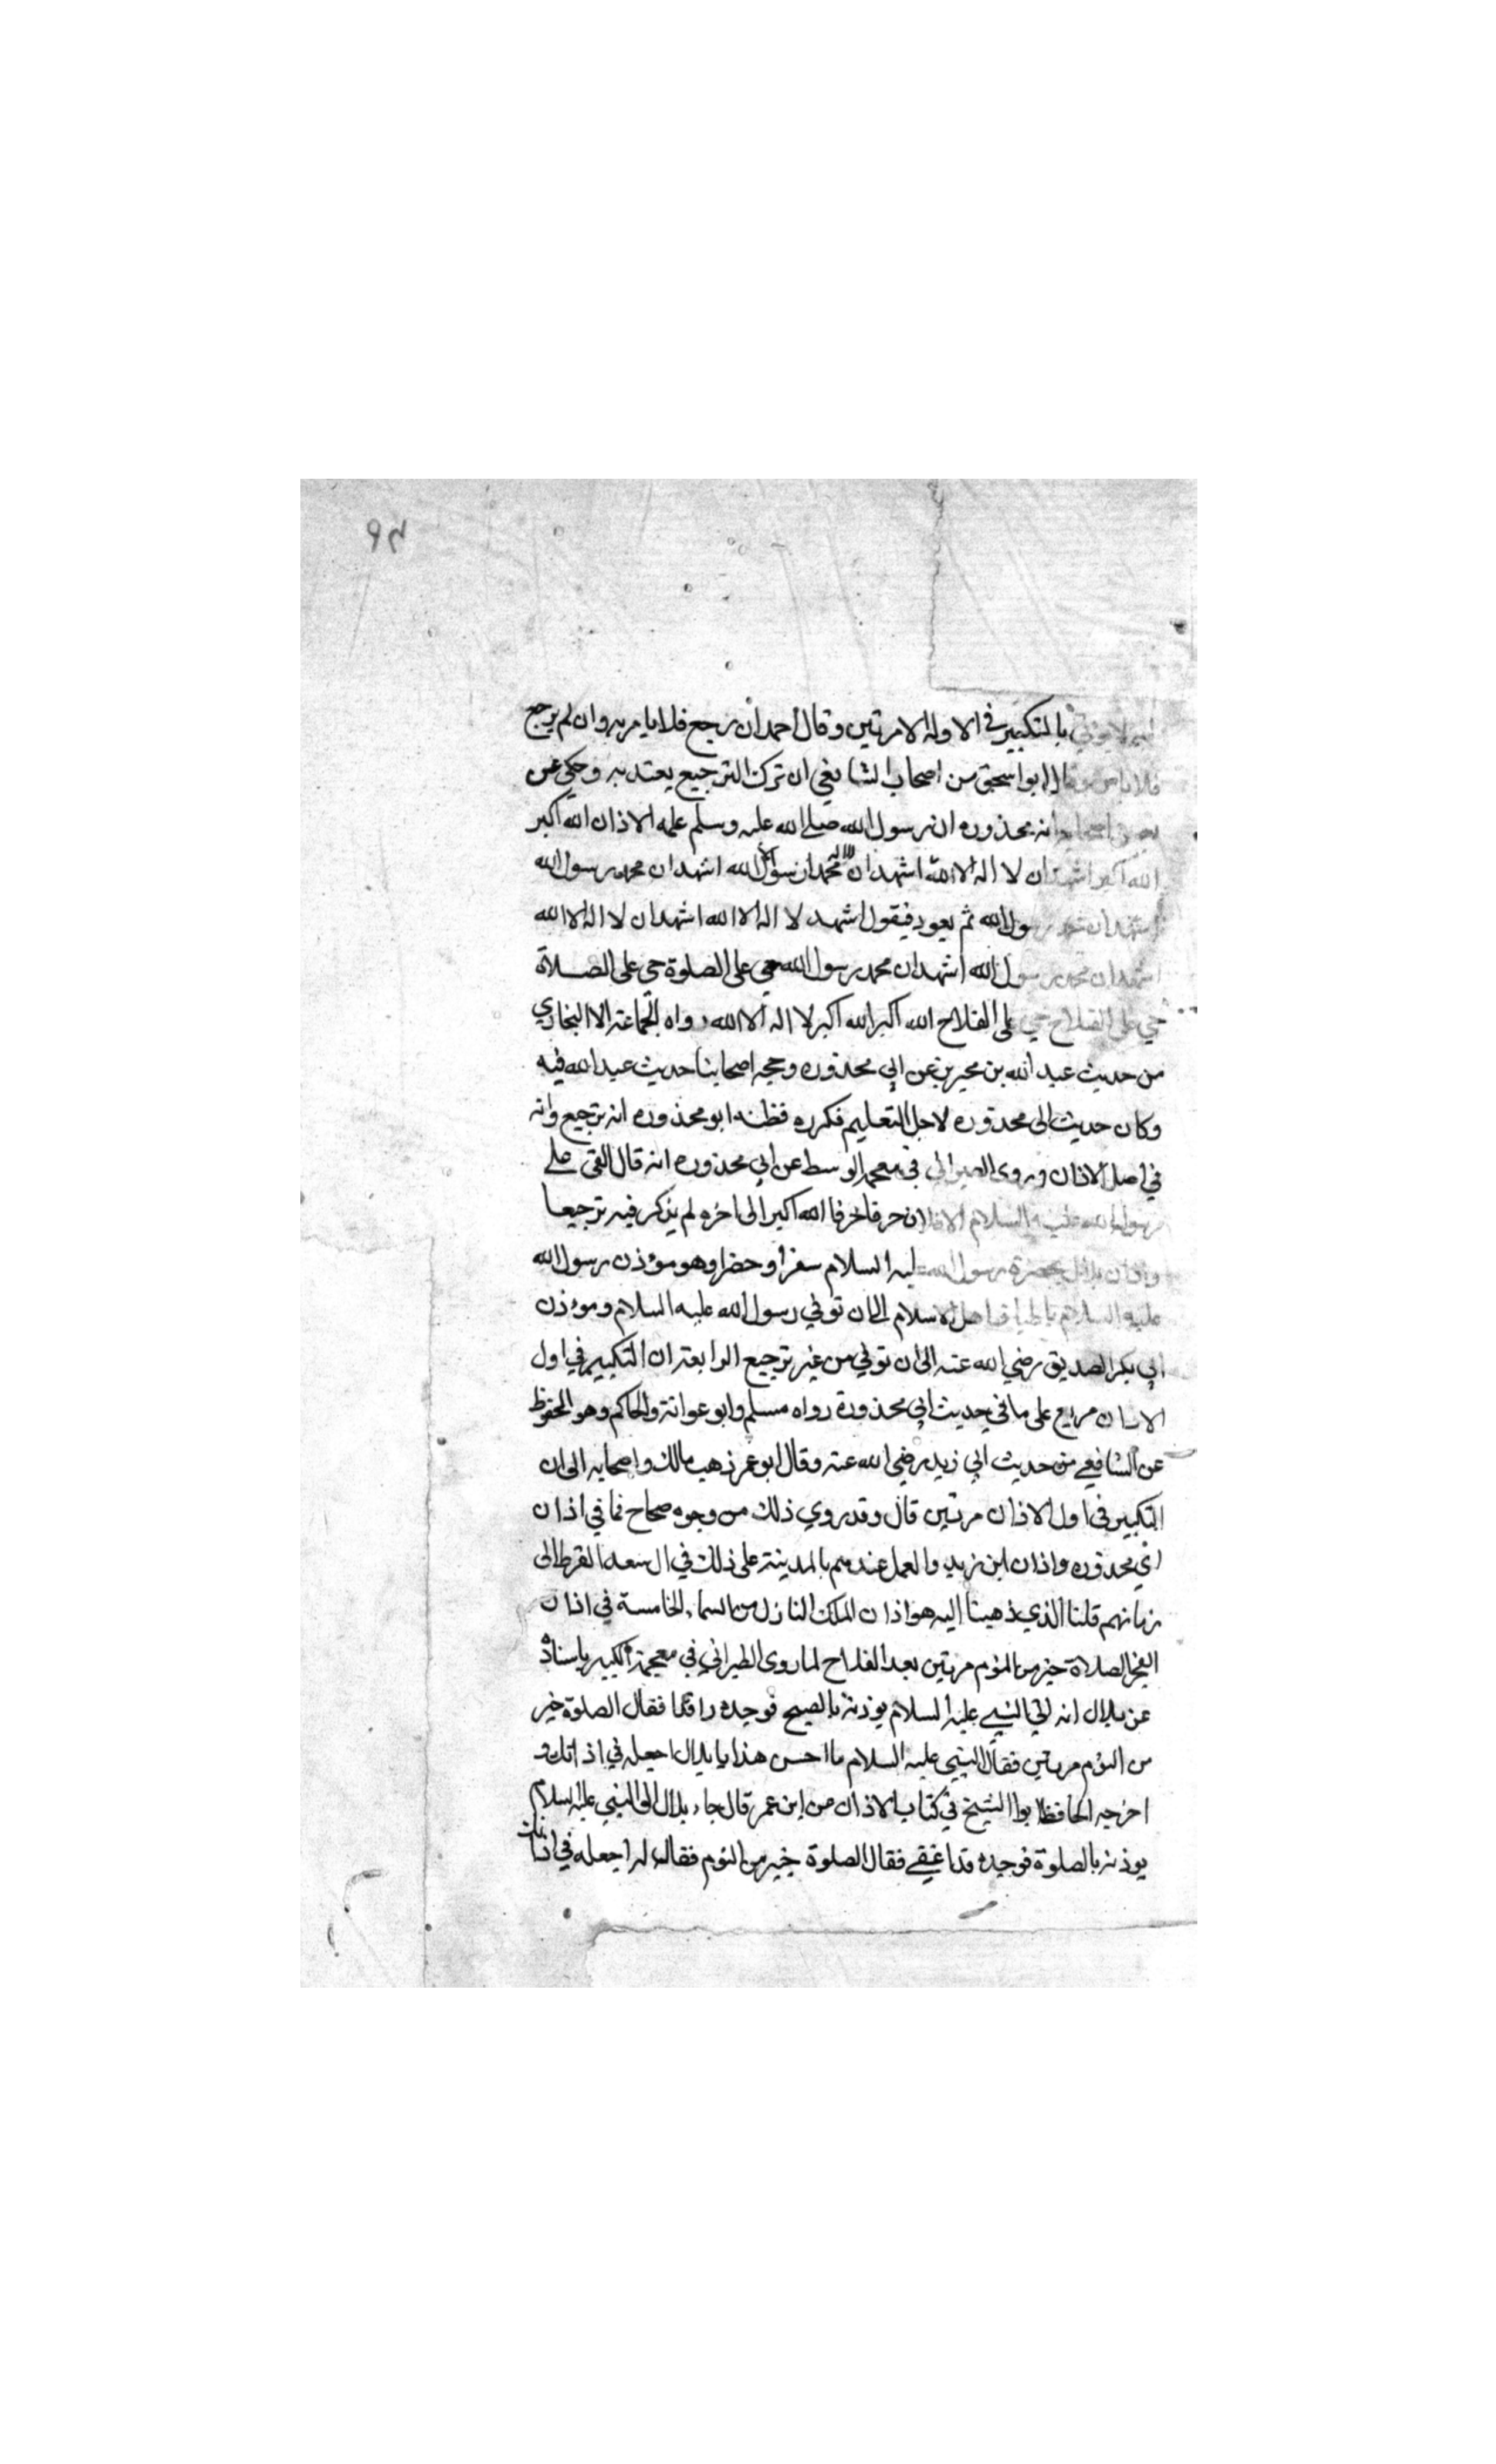 ٩٣
بالتكبير في الاوله الا مرتين وقال احمد ان رجع فلا بأمر به وان لم يرجع
ابو اسحق من اصحاب الشافعي ان ترك الترجيع يعتد به وحكي عن
محذوره ان رسول الله صلى الله عليه وسلم علمه الاذان الله اكبر
الله اكبر اشهد ان لا اله الا الله اشهد ان محمدا رسول الله اشهد ان محمد رسول الله
اشهد ان محمد رسول الله ثم يعود فيقول اشهد لا اله الا الله اشهد ان لا اله الا الله
اشهد ان محمد رسول الله اشهد ان محمد رسول الله حي على الصلوة حي على الصلاة
حي على الفلاح حي على الفلاح الله اكبر الله اكبر لا اله الا الله رواه الجماعة الا البخاري
من حديث عبد الله بن محيريز عن ابي محذوره وحجه اصحابنا حديث عبد الله فيه
وكان حديث الى محذوره لاجل التعليم فكرره فظنه ابو محذوره انه ترجيع وانه
في اصل الاذان وروى الطبراني في معجمه الوسط عن ابي محذوره انه قال القى علي
رسول الله عليه السلام الاذان حرفا حرفا الله اكبر الى اخره لم يذكر فيه ترجيعا
واذان بلال بحضرة رسول الله عليه السلام سفرا وحضرا وهو موذن رسول الله
عليه السلام باطباق اهل الاسلام الى ان توفي رسول الله عليه السلام وموذن
ابي بكر الصديق رضي الله عنه الى ان توفي من غير ترجيع الرابعة ان التكبير في اول
الاذان مربع على ما في حديث ابي محذورة رواه مسلم وابو عوانة والحاكم وهو المحفوظ
عن الشافعي من حديث ابي زيد رضي الله عنه وقال ابو عمر ذهب مالك واصحابه الى ان
التكبير في اول الاذان مرتين قال وقد روي ذلك من وجوه صحاح في اذان
ابي محذوره واذان ابن زيد والعمل عندهم بالمدينة على ذلك في ال سعد القرظ الى
زمانهم قلنا الذي ذهبنا اليه هو اذان الملك النازل من السماء الخامسة في اذان
الفجر الصلاة خير من النوم مرتين بعد الفلاح لما روى الطبراني في معجمه الكبير باسناده
عن بلال انه اتى النبي عليه السلام يوذنه بالصبح فوجده راقدا فقال الصلوة خير
من النوم مرتين فقال النبي عليه السلام ما احسن هذا يا بلال اجعله في اذانك و
اخرجه الحافظ ابو الشيخ في كتاب الاذان عن ابن عمر قال جاء بلال الى النبي عليه السلام
يوذنه بالصلوة فوجده قد اغفى فقال الصلوة خير من النوم فقال له اجعله في اذانك